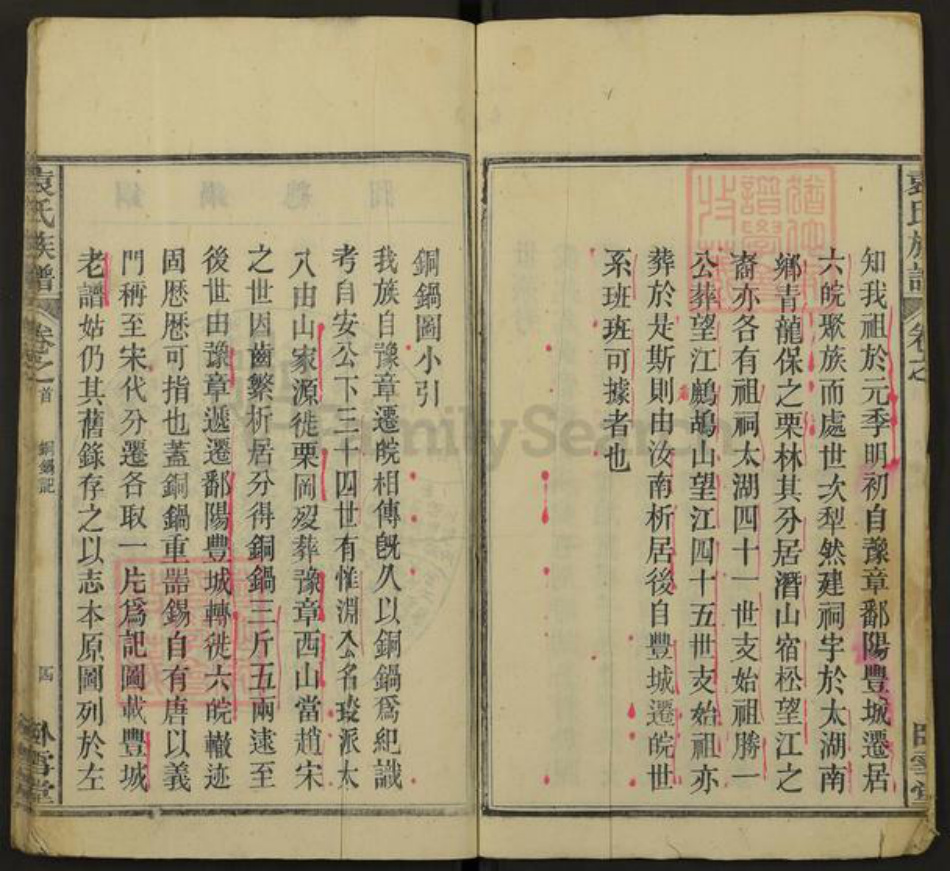 知我祖於元季明初自豫章鄱陽豐城遷居
六皖聚族而處世次犁然建祠宇於太湖南
鄉青龍保之栗林其分居潛山宿松望江之
裔亦各有祖祠太湖四十一世支始祖勝一
公葬望江鷓鴣山望江四十五世支始祖亦
葬於是斯則由汝南析居後自豐城遷皖世
系班班可據者也
袁氏族譜
卷之首
銅鍋記
四
臥雪堂
銅鍋圖小引
我族自豫章遷皖相傳既久以銅鍋為紀識
考自安公下三十四世有惟淵公名璇派太
八由山家源徙栗岡歿葬豫章西山當趙宋
之世因齒繁析居分得銅鍋三斤五兩逮至
後世由豫章遞遷鄱陽豐城轉徙六皖轍迹
固歷歷可指也蓋銅鍋重器錫自有唐以義
門稱至宋代分遷各取一片為記圖載豐城
老譜姑仍其舊錄存之以志本原圖列於左
FamilySearch